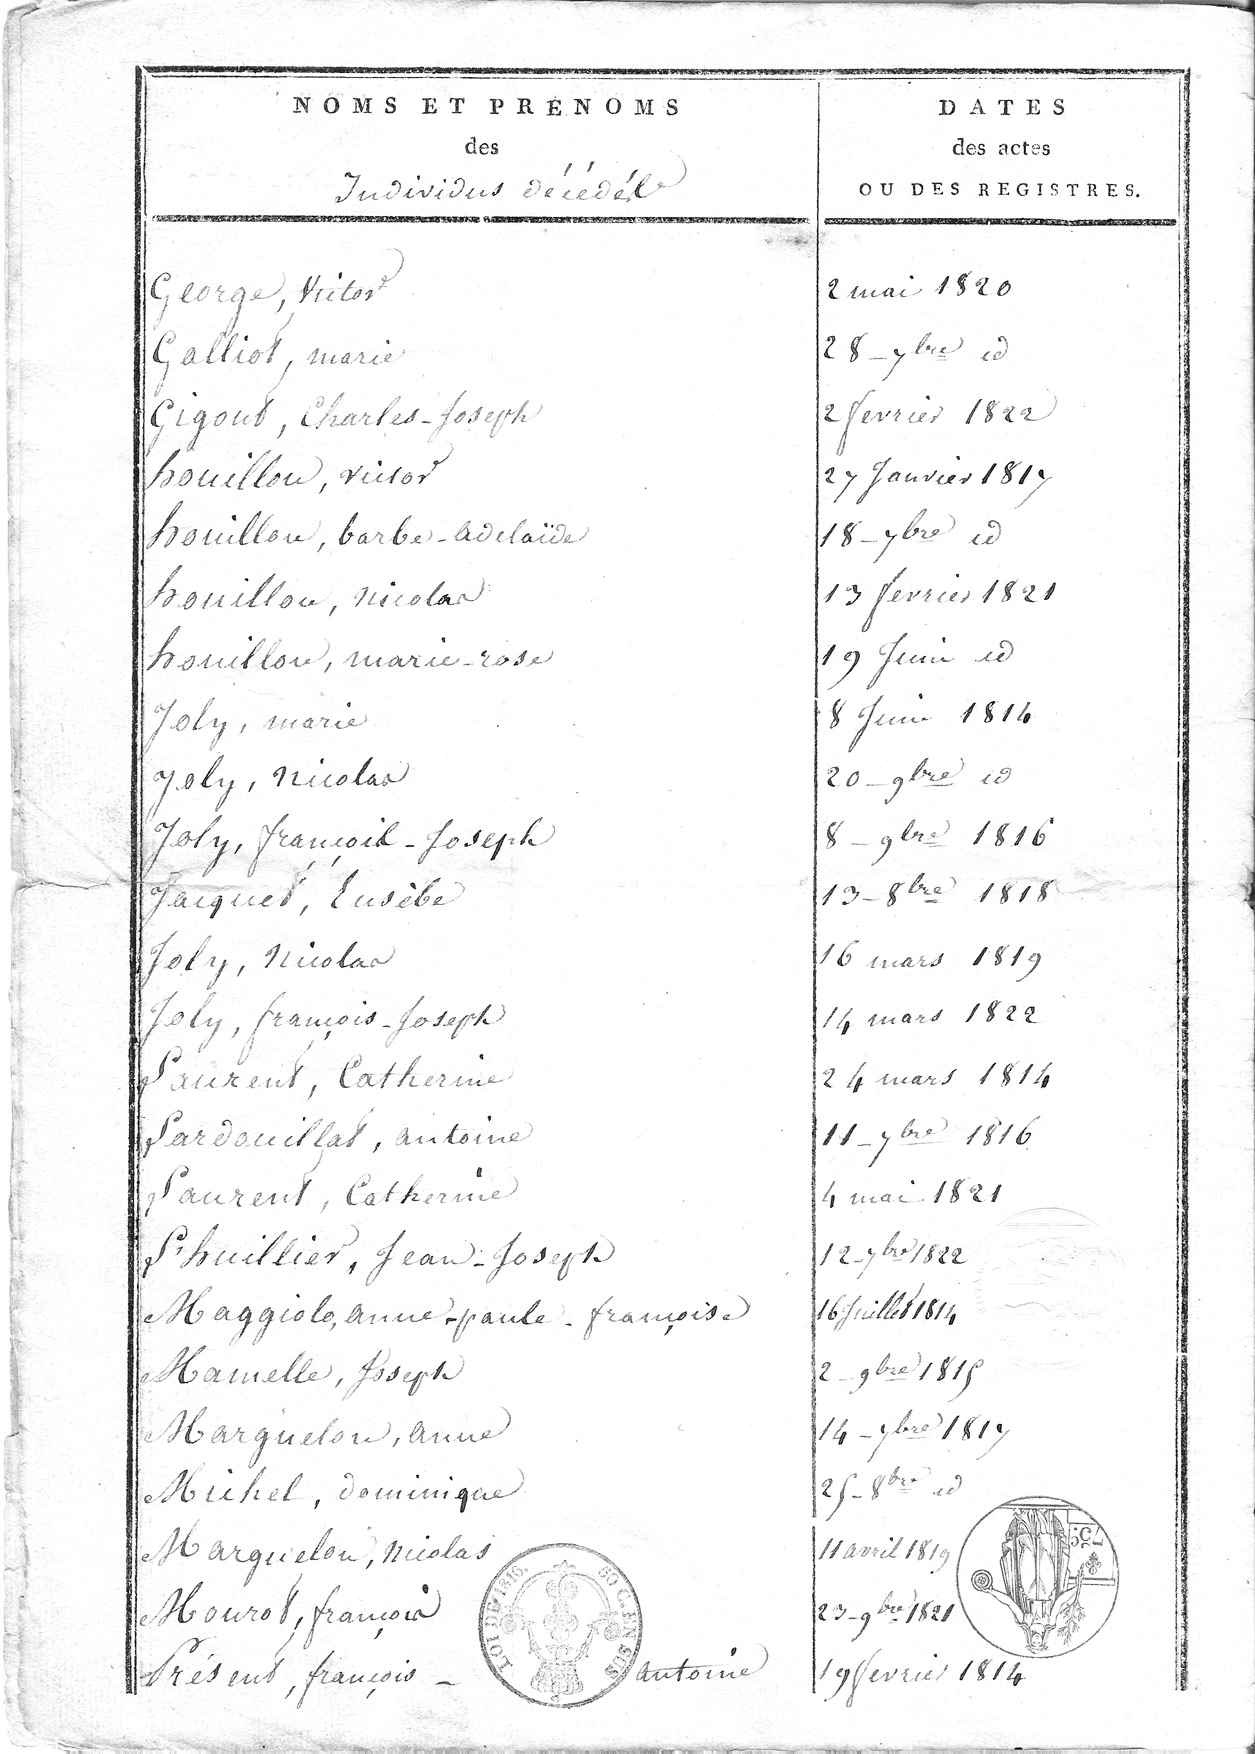 NOMS ET PRÉNOMS
des
Individus décédés
DATES
des actes
OU DES REGISTRES.
George, Victor 2 mai 1820
Galliot, marie 28_7bre id
Gigout, Charles-Joseph 2 fevrier 1822
houillon, victor 27 Janvier 1817
houillon, barbe-adelaïde 18_7bre id
houillon, Nicolas 13 fevrier 1821
houillon, marie-rose 19 Juin id
Joly, marie 8 Juin 1814
Joly, Nicolas 20_9bre id
Joly, françois-Joseph 8_9bre 1816
Jacquet, Eusèbe 13_8bre 1818
Joly, Nicolas 16 mars 1819
Joly, françois-Joseph 14 mars 1822
Laurent, Catherine 24 mars 1814
Lardouillat, antoine 11_7bre 1816
Laurent, Catherine 4 mai 1821
L'huillier, Jean-Joseph 12_7bre 1822
Maggiolo, anne-paule-françoise 16 Juillet 1814
Mamelle, Joseph 2_9bre 1815
Marguelon, anne 14_7bre 1817
Michel, dominique 25_8bre id
Marguelon, Nicolas 11 avril 1819
Mourot, françois 23_9bre 1821
Présent, françois-antoine 19 fevrier 1814
LOI DE 1816.
50 C. EN SUS
75c